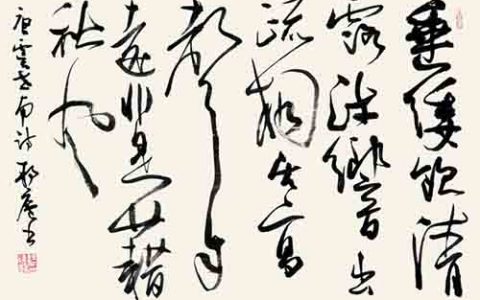 垂緌飲清
露流響出
疏桐居高
聲自
遠非是藉
秋風
唐虞世南詩 書